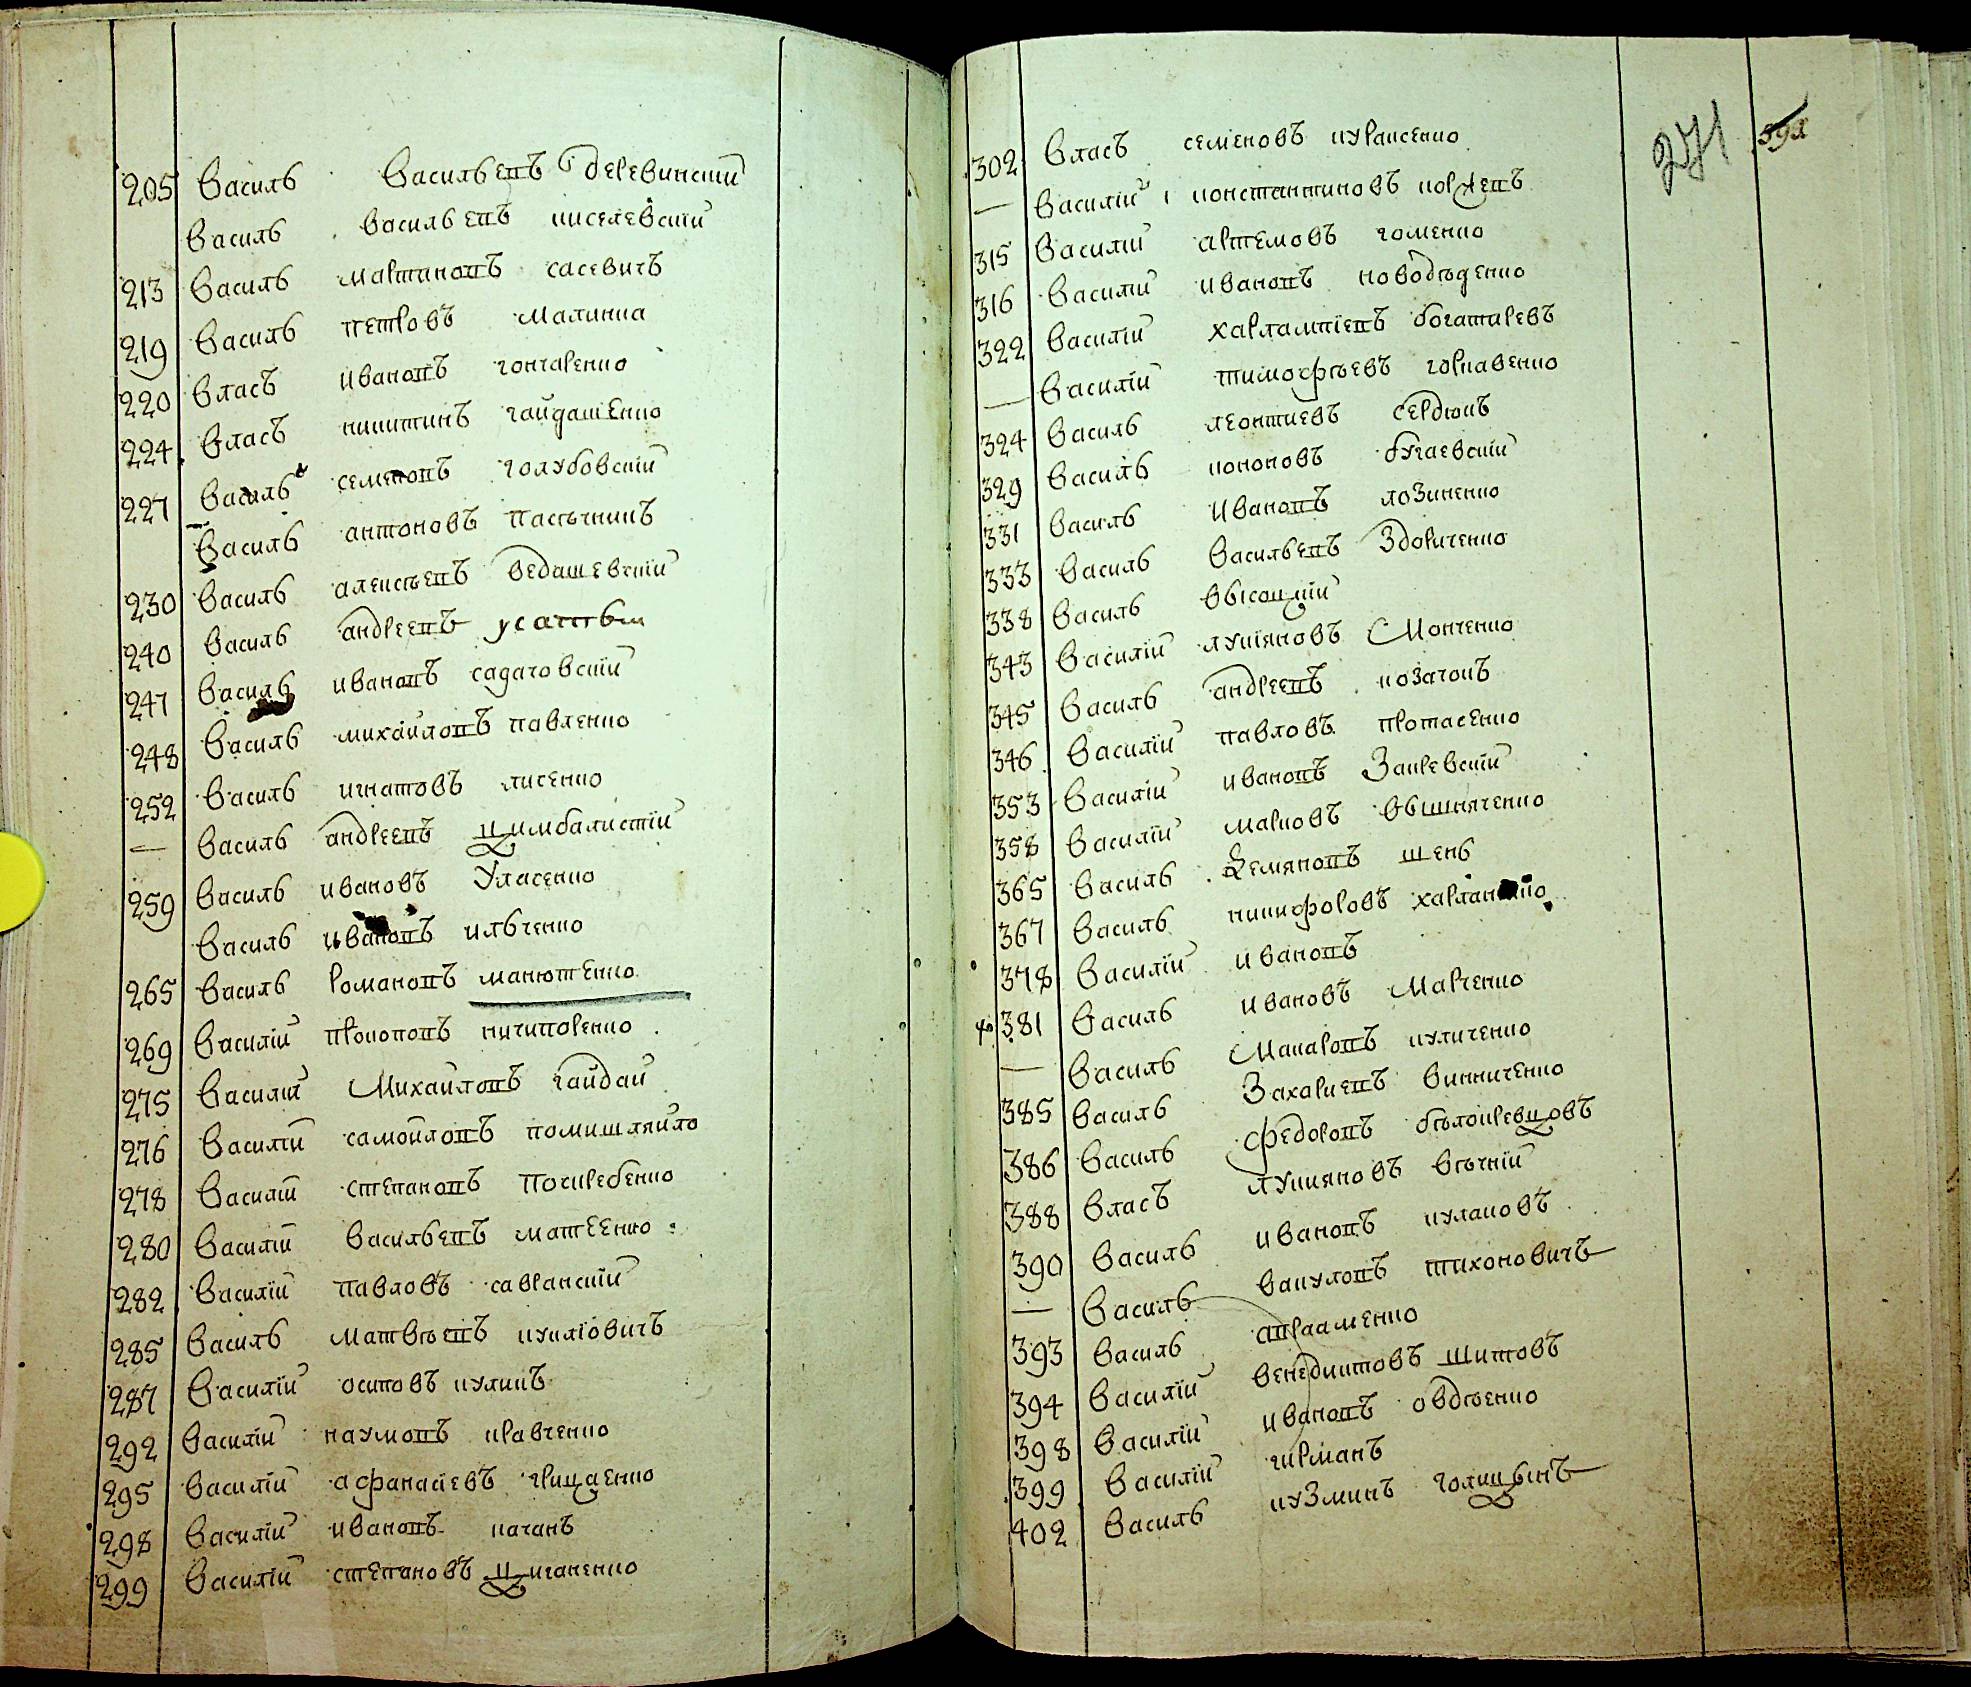 205 Василь Васильевъ деревинскій
Василь Васильевъ киселевскій
213 Василь мартиновъ сасевичъ
219 Василь петровъ малинка
220 Власъ ивановъ гончаренко
224 Власъ никитинъ гайдашенко
227 Василь семеновъ голубовскій
Василь антоновъ пасѣчникъ
230 Василь алексѣевъ ведашевскій
240 Василь андреевъ усатый
247 Василь ивановъ садаговскій
248 Василь михайловъ павленко
252 Василь игнатовъ лисенко
— Василь андреевъ цимбалистій
259 Василь ивановъ Уласенко
Василь ивановъ ильченко
265 Василь романовъ манютенко
269 Василій прокоповъ ничипоренко
275 Василій Михайловъ гайдай
276 Василій самойловъ помишляйло
278 Василій степановъ поскребенко
280 Василій Васильевъ матеенко
282 Василій павловъ савранскій
285 Василь матвѣевъ куліовичъ
287 Василій осиповъ куликъ
292 Василій наумовъ кравченко
295 Василій афанасіевъ грицаенко
298 Василій ивановъ качанъ
299 Василій степановъ циганенко
302 Власъ семеновъ курасенко
— Василій константиновъ коржевъ
315 Василій артемовъ гоменко
316 Василій ивановъ новодѣденко
322 Василій харлампіевъ богатиревъ
— Василій тимофѣевъ горкавенко
324 Василь леонтиевъ сердюкъ
329 Василь кононовъ бугаевскій
331 Василь Ивановъ лозиненко
333 Василь Васильевъ Здориченко
338 Василь высоцкій
343 Василій лукіяновъ Мокченко
345 Василь андреевъ козачокъ
346 Василій павловъ протасенко
353 Василій ивановъ Закревскій
358 Василій марковъ вышняченко
365 Василь Демяновъ шень
367 Василь никифоровъ
378 Василій ивановъ
381 Василь ивановъ Марченко
— Василь Макаровъ куличенко
385 Василь Захариевъ винниченко
386 Василь федоровъ бѣлокревцовъ
388 Власъ лукияновъ вѣчній
390 Василь ивановъ кулаковъ
— Василь вакуловъ тихоновичъ
393 Василь авраменко
394 Василій венедиктовъ шитовъ
398 Василій ивановъ овдѣенко
399 Василій гирманъ
402 Василь кузминъ голицынъ
271